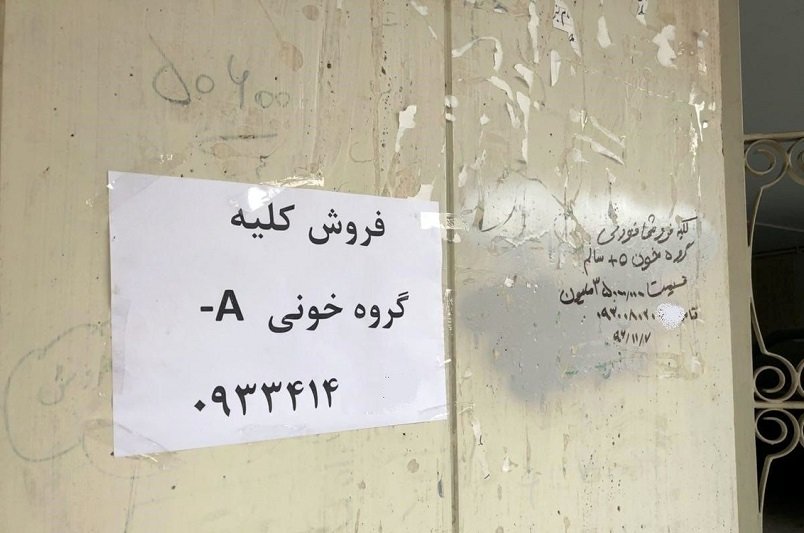 ۵۰۶۰۰
فروش کلیه
گروه خونی A-
۰۹۳۳۴۱۴
کلیه فروشی فوری
گروه خون O+ سالم
قیمت ۳۵,۰۰۰,۰۰۰ میلیون
۰۹۲۰۰۸۰۲۰
۹۶/۱۱/۷